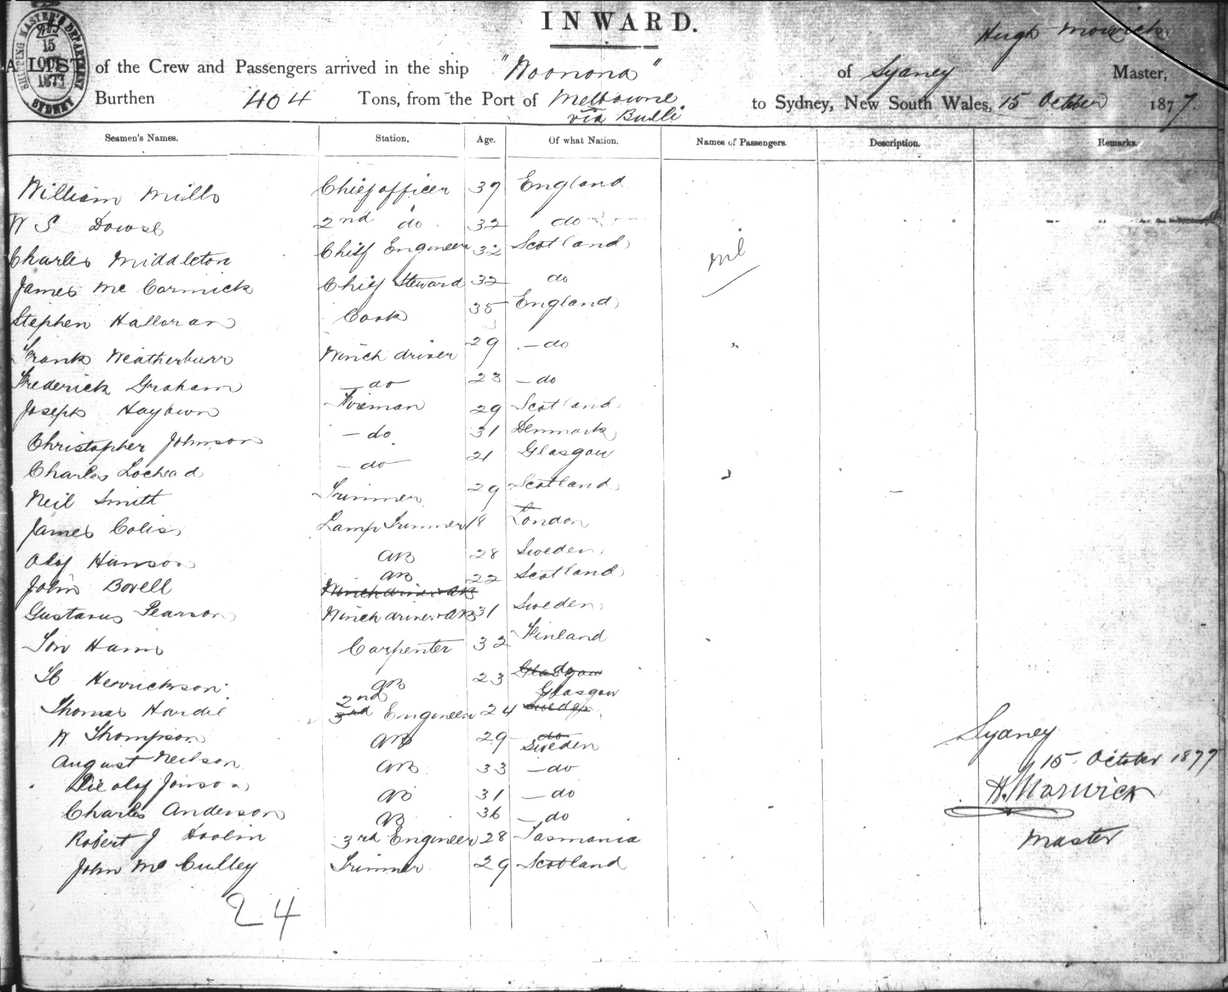 INWARD.
SHIPPING MASTER'S DEPARTMENT
15
OCT
1877
SYDNEY
Hugh Morwick
A LIST of the Crew and Passengers arrived in the ship "Woonona" of Sydney Master,
Burthen 404 Tons, from the Port of Melbourne to Sydney, New South Wales, 15 October 1877.
via Bulli
Seamen's Names. Station. Age. Of what Nation. Names of Passengers. Description. Remarks.
William Mills Chief officer 39 England
W S Dowse 2nd do 32 do
Charles Middleton Chief Engineer 32 Scotland
nil
James Mc Cormick Chief Steward 32 do
Stephen Halloran Cook 35 England
Frank Weatherburr Winch driver 29 - do
Frederick Graham - do 23 - do
Joseph Hayown Fireman 29 Scotland
Christopher Johnson - do 31 Denmark
Charles Lochead - do 21 Glasgow
Neil Smith Trimmer 29 Scotland
James Colis Lamp Trimmer 18 London
Olof Hanson AB 28 Sweden
John Bovell AB 22 Scotland
Winch driver & AB
Gustavus Pearson Winch driver & AB 31 Sweden
Hann Carpenter 32 Finland
Henrickson AB 23 do
Glasgow
Thomas Hardie 2nd 3rd Engineer 24 Glasgow
Sweden
W Thompson AB 29 do Sweden
August Neilson AB 33 - do
Olof Jonson AB 31 - do
Charles Anderson AB 36 - do
Robert J Hoolin 3rd Engineer 28 Tasmania
John Mc Culley Trimmer 29 Scotland
24
Sydney
15 October 1877
H. Morwick
Master